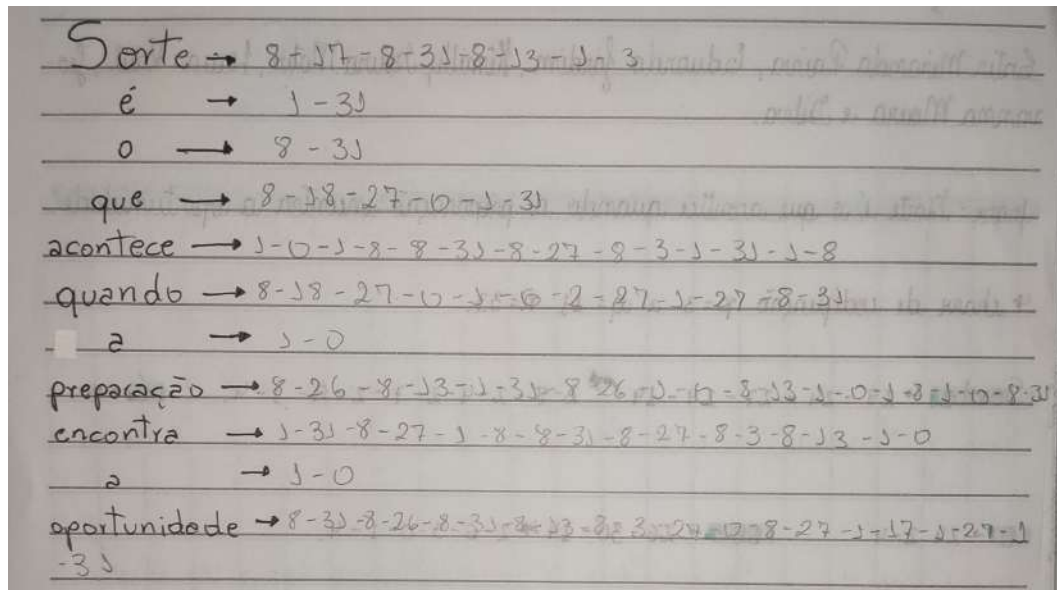 Sorte → 8-17-8-31-8-13-1-3
é → 1-31
o → 8-31
que → 8-18-27-0-1-31
acontece → 1-0-1-8-8-31-8-27-8-3-1-31-1-8
quando → 8-18-27-0-1-0-2-27-1-27-8-31
a → 1-0
preparação → 8-26-8-13-1-31-8-26-1-0-8-13-1-0-1-8-1-0-8-31
encontra → 1-31-8-27-1-8-8-31-8-27-8-3-8-13-1-0
a → 1-0
oportunidade → 8-31-8-26-8-31-8-13-8-3-27-0-8-27-1-17-1-27-1
-31